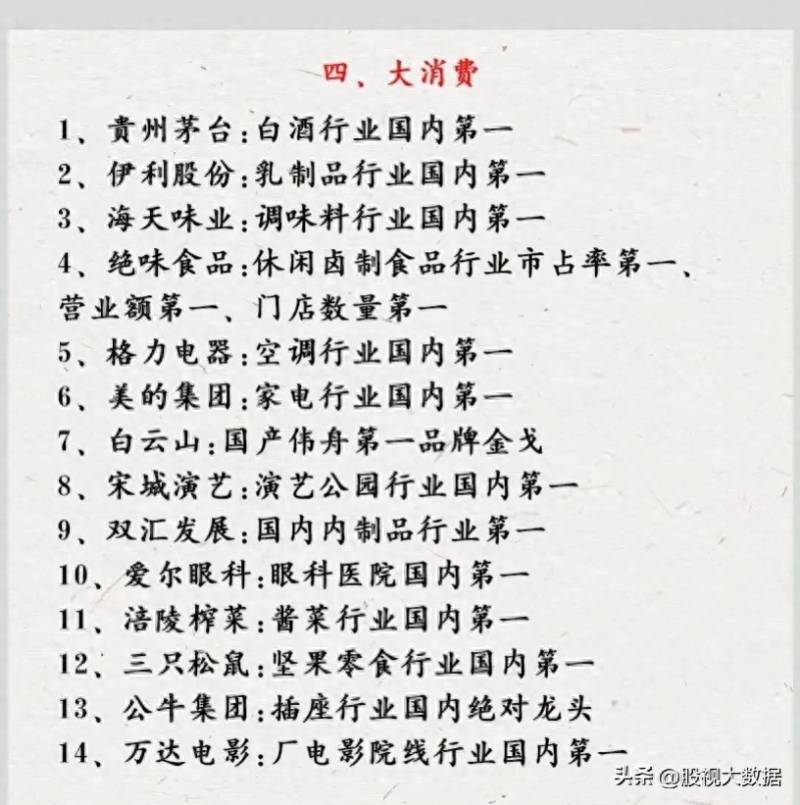 四、大消费
1、貴州茅台:白酒行业国内第一
2、伊利股份:乳制品行业国内第一
3、海天味业:调味料行业国内第一
4、绝味食品:休闲卤制食品行业市占率第一、
营业额第一、门店数量第一
5、格力电器:空调行业国内第一
6、美的集团:家电行业国内第一
7、白云山:国产伟舟第一品牌金戈
8、宋城演艺:演艺公园行业国内第一
9、双汇发展:国内内制品行业第一
10、爱尔眼科:眼科医院国内第一
11、涪陵榨菜:酱菜行业国内第一
12、三只松鼠:坚果零食行业国内第一
13、公牛集团:插座行业国内绝对龙头
14、万达电影:厂电影院线行业国内第一
头条 @股视大数据